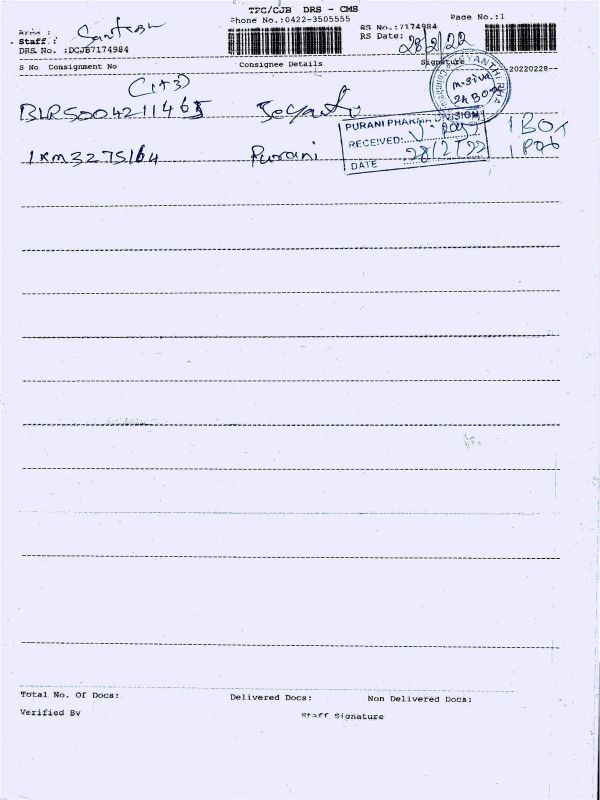 TPC/CJB DRS - CMS
Phone No.:0422-3505555 Page No.:1
Area : RS No.:7174984
Staff : Santosh RS Date: 28/2/22
DRS. No. :DCJB7174984
S No Consignment No Consignee Details Signature --20220228--
(1+3)
m.siva
BLR5004211465
PURANI PHARMA DIVISION 1 BOX
1KM3275164 Purani RECEIVED:
DATE 28/2/22
Total No. Of Docs: Delivered Docs: Non Delivered Docs:
Verified By Staff Signature